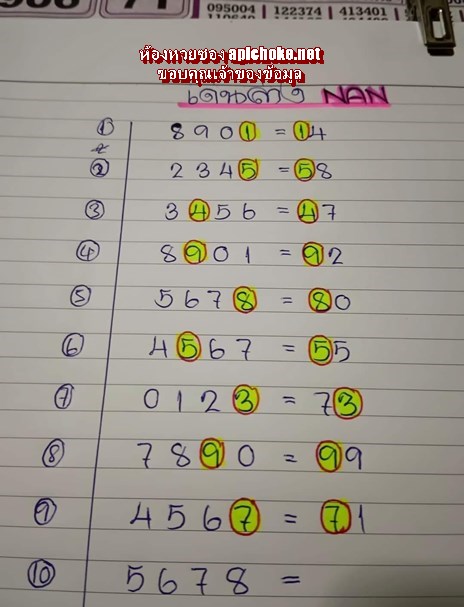 095004 | 122374 | 413401
ห้องหวยซอง apichoke.net
ขอบคุณเจ้าของข้อมูล
เด่นล่าง NAN
① 8901 = 14
② 2345 = 58
③ 3456 = 47
④ 8901 = 92
⑤ 5678 = 80
⑥ 4567 = 55
⑦ 0123 = 73
⑧ 7890 = 99
⑨ 4567 = 71
⑩ 5678 =